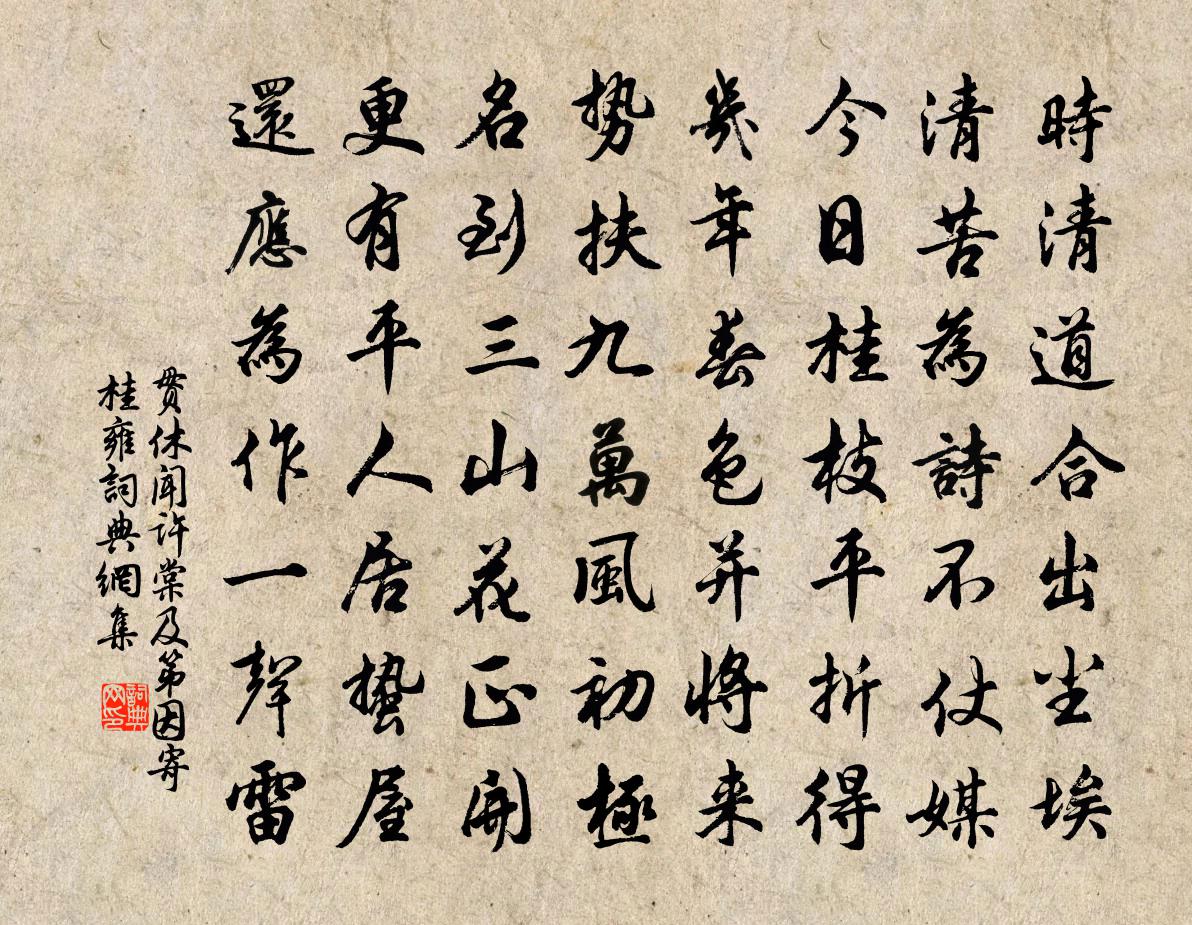 時清道合出尘埃
清苦為詩不仗媒
今日桂枝平折得
幾年春色并將来
势扶九萬風初極
名到三山花正開
更有平人居蟄屋
還應為作一聲雷
贯休闻许棠及第因寄
桂雍詞典網集
詞典网印